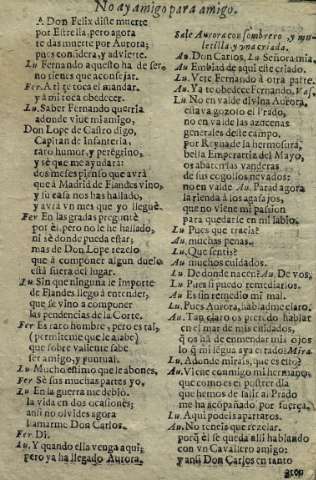 No ay amigo para amigo.
A Don Felix diste muerte
por Estrella, pero agora
te das muerte por Aurora;
pues considera, y advierte.
Lu Fernando aquello ha de ser,
no tienes que aconsejar.
Fer. A ti te toca el mandar
y à mi toca obedecer.
Lu. Saber Fernando querria
adonde viue mi amigo,
Don Lope de Castro digo,
Capitan de Infanteria,
raro humor, y peregrino,
y sè que me ayudarà:
dos meses pienso que avrà
que à Madrid de Flandes vino,
y su casa nos has hallado,
y avrà vn mes que yo lleguè.
Fer En las gradas preguntè
por èl, pero no le he hallado,
ni sè donde pueda estar;
mas de Don Lope rezelo
que à componer algun duelo
està fuera del lugar.
Lu Sin que ninguna le importe
de Flandes llegò à entender,
que se vino à componer
las pendencias de la Corte.
Fer Es raro hombre, pero es tal,
(permiteme que le alabe)
que sobre valiente sabe
ser amigo, y puntual.
Lu Mucho estimo que le abones,
Fer Sè sus muchas partes yo,
Lu En la guerra me debiò
la vida en dos ocasiones;
ansi no olvides agora
llamarme Don Carlos.
Fer Di.
Lu. Y quando ella venga aqui;
pero ya ha llegado Aurora.
Sale Aurora con sombrero, y muletilla, y una criada.
Au. Don Carlos. Lu Señora mia,
Au Embiad de aqui esse criado.
Lu. Vete Fernando à otra parte.
Au. Ya te obedece Fernando. Vas.
Lu No en valde divina Aurora,
estava gozoso el Prado,
no en valde las azucenas
generales deste campo,
por Reyna de la hermosura,
bella Emperatriz del Mayo,
os abatieron vanderas
de sus cogollos nevados:
no en valde Au. Parad agora
la rienda à los agasajos,
que no viene mi passion
para quedarse en mi labio.
Lu Pues que traeis?
Au. muchas penas.
Lu. Que sentis?
Au muchos cuidados.
Lu. De donde nacen? Au. De vos,
Lu Pues si puedo remediarlos.
Au Es sin remedio mi mal.
Lu. Pues Aurora, hablad mas claro,
Au. Tan claro os pretendo hablar
en el mar de mis cuidados,
q̃ os ha de enmendar mis ojos
lo q̃ mi legua aya errado: Mira
Lu. Adonde mirais, que es esto?
Au. Viene conmigo mi hermano,
que como es el postrer dia
que hemos de salir al Prado
me ha acompañado por fuerça,
Lu. Aqui podeis apartaros.
Au. No teneis que rezelar.
porq̃ èl se queda alli hablando
con vn Cavallero amigo:
y ansi Don Carlos en tanto